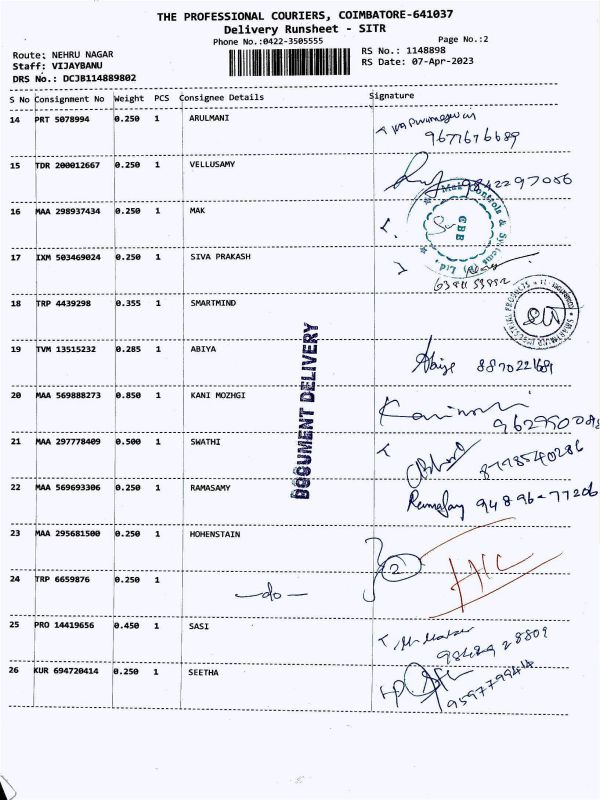 THE PROFESSIONAL COURIERS, COIMBATORE-641037
Delivery Runsheet - SITR
Phone No.:0422-3505555 Page No.:2
Route: NEHRU NAGAR RS No.: 1148898
Staff: VIJAYBANU RS Date: 07-Apr-2023
DRS No.: DCJB114889802
S No Consignment No Weight PCS Consignee Details Signature
14 PRT 5078994 0.250 1 ARULMANI
9677676689
15 TDR 200012667 0.250 1 VELLUSAMY 9842297086
16 MAA 298937434 0.250 1 MAK
Mak Controls & Systems Ltd.
CBE
17 IXM 503469024 0.250 1 SIVA PRAKASH
18 TRP 4439298 0.355 1 SMARTMIND
19 TVM 13515232 0.285 1 ABIYA
Abiya
20 MAA 569888273 0.850 1 KANI MOZHGI
Kanimozhi
21 MAA 297778409 0.500 1 SWATHI
8798540286
22 MAA 569693306 0.250 1 RAMASAMY
Ramasamy 94896-77206
23 MAA 295681500 0.250 1 HOHENSTAIN
2
24 TRP 6659876 0.250 1 —do—
25 PRO 14419656 0.450 1 SASI
26 KUR 694720414 0.250 1 SEETHA
9597799414
DOCUMENT DELIVERY